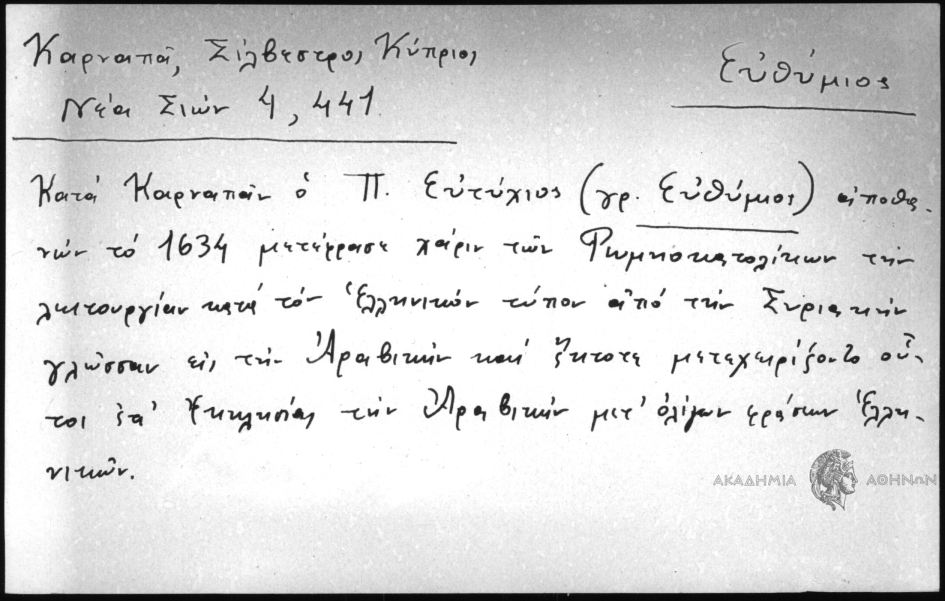 Καρναπᾶ, Σίλβεστρος Κύπριος
Νέα Σιών 4, 441
Εὐθύμιος
Κατά Καρναπᾶν ὁ Π. Εὐτύχιος (γρ. Εὐθύμιος) ἀποθα-
νών τό 1634 μετέφρασε χάριν τῶν Ρωμηοκατολίκων τήν
λειτουργίαν κατά τόν Ἑλληνικόν τύπον ἀπό τήν Συριακήν
γλῶσσαν εἰς τήν Ἀραβικήν καί ἔκτοτε μετεχειρίζοντο οὗ-
τοι ἐπ' Ἐκκλησίας τήν Ἀραβικήν μετ' ὀλίγων φράσεων Ἑλλη-
νικῶν.
ΑΚΑΔΗΜΙΑ ΑΘΗΝΩΝ